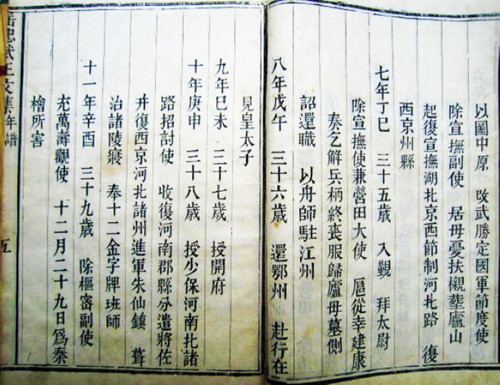 以圖中原 改武勝定國軍節度使
除宣撫副使 居母憂扶櫬塟廬山
起復宣撫湖北京西節制河北路 復
西京州縣
七年丁巳 三十五歲 入覲 拜太尉
除宣撫使兼營田大使 扈從幸建康
奏乞解兵柄終喪服歸廬母墓側
詔還職 以舟師駐江州
八年戊午 三十六歲 還鄂州 赴行在
見皇太子
九年巳未 三十七歲 授開府
十年庚申 三十八歲 授少保河南北諸
路招討使 收復河南郡縣分遣將佐
幷復西京河北諸州進軍朱仙鎮 葺
治諸陵寢 奉十二金字牌班師
十一年辛酉 三十九歲 除樞密副使
充萬壽觀使 十二月二十九日爲秦
檜所害
岳忠武王文集 年譜 五